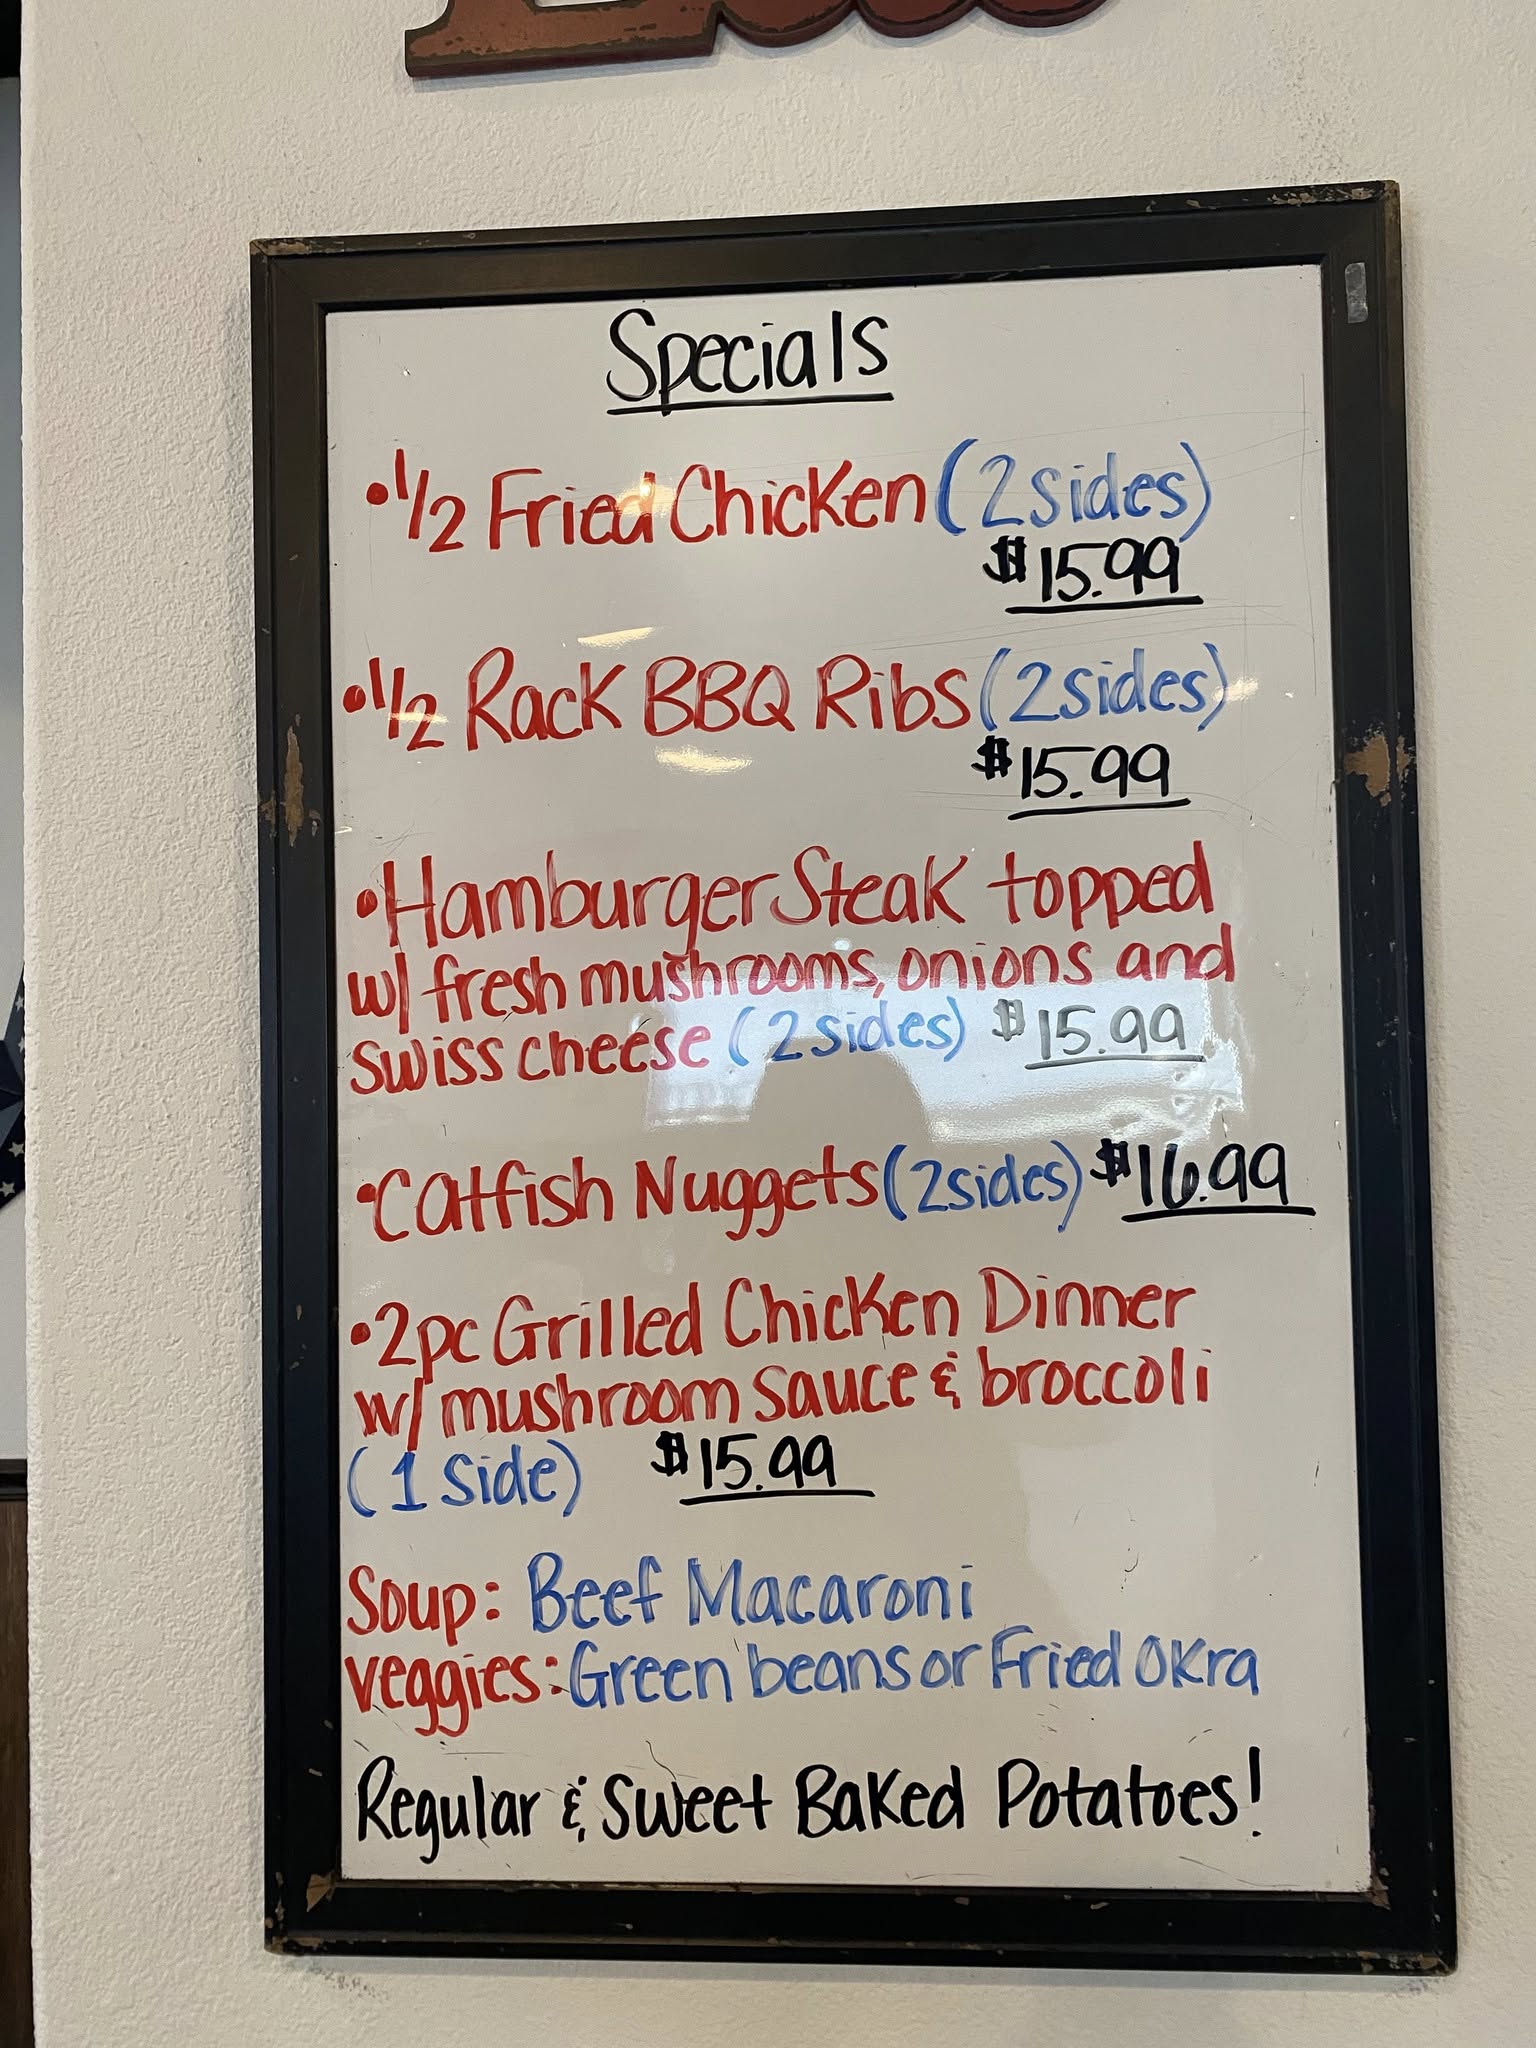 Specials
•1/2 Fried Chicken (2 sides)
$15.99
•1/2 Rack BBQ Ribs (2 sides)
$15.99
•Hamburger Steak topped
w/ fresh mushrooms, onions and
swiss cheese (2 sides) $15.99
•Catfish Nuggets (2 sides) $16.99
•2pc Grilled Chicken Dinner
w/ mushroom sauce & broccoli
(1 side) $15.99
Soup: Beef Macaroni
veggies: Green beans or Fried Okra
Regular & Sweet Baked Potatoes!